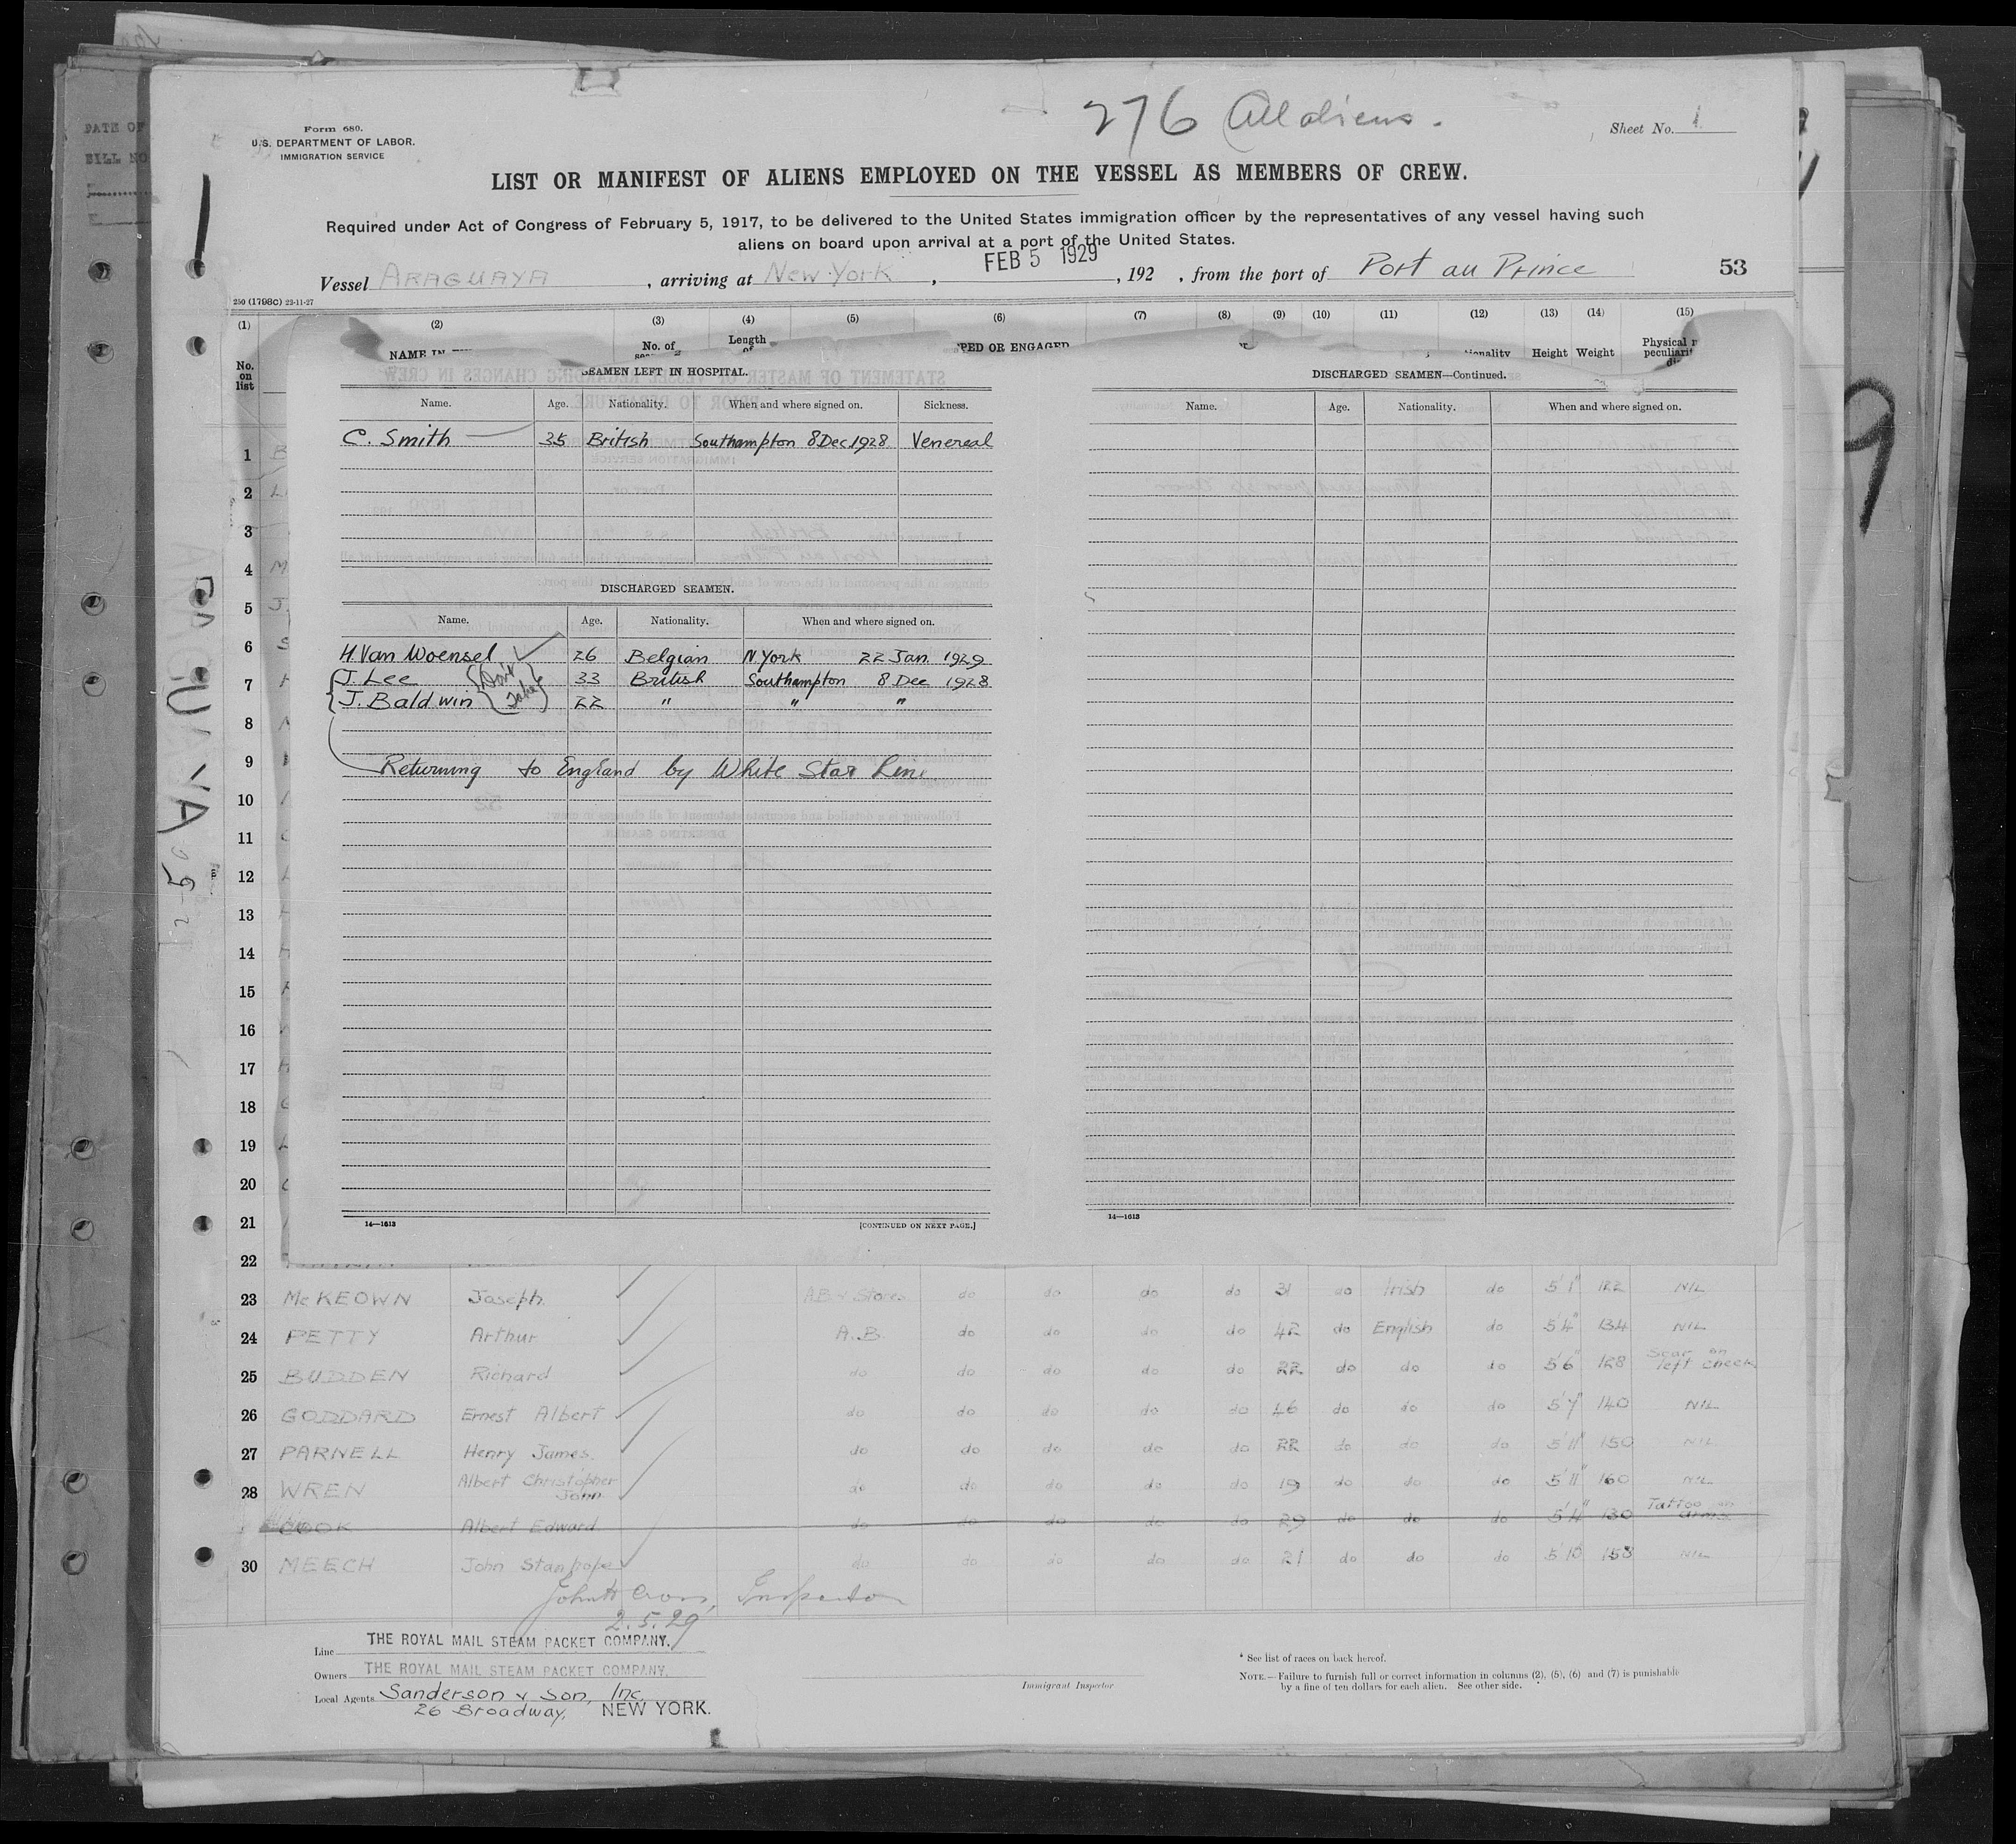 276 All aliens.
Form 680.
U.S. DEPARTMENT OF LABOR.
IMMIGRATION SERVICE
Sheet No. 1
LIST OR MANIFEST OF ALIENS EMPLOYED ON THE VESSEL AS MEMBERS OF CREW.
Required under Act of Congress of February 5, 1917, to be delivered to the United States immigration officer by the representatives of any vessel having such
aliens on board upon arrival at a port of the United States.
Vessel ARAGUAYA, arriving at New York, FEB 5 1929, 192 , from the port of Port au Prince 53
250 (1798C) 23-11-27
(1) (2) (3) (4) (5) (6) (7) (8) (9) (10) (11) (12) (13) (14) (15)
No. on list NAME IN No. of Length PED OR ENGAGED Height Weight Physical
SEAMEN LEFT IN HOSPITAL.
Name. Age. Nationality. When and where signed on. Sickness.
C. Smith 35 British Southampton 8 Dec 1928 Venereal
DISCHARGED SEAMEN.
Name. Age. Nationality. When and where signed on.
H. Van Woensel 26 Belgian N York 22 Jan. 1929
J. Lee 33 British Southampton 8 Dec 1928
J. Baldwin 22 " " "
Returning to England by White Star Line
14—1613 [CONTINUED ON NEXT PAGE.]
DISCHARGED SEAMEN—Continued.
Name. Age. Nationality. When and where signed on.
14—1613
1
2
3
4
5
6
7
8
9
10
11
12
13
14
15
16
17
18
19
20
21
22
23 McKEOWN Joseph A.B. & Stores do do do do 31 do Irish do 5'1" 122 NIL
24 PETTY Arthur A.B. do do do do 42 do English do 5'4" 134 NIL
25 BUDDEN Richard do do do do do 22 do do do 5'6" 128 Scar on left cheek
26 GODDARD Ernest Albert do do do do do 46 do do do 5'7" 140 NIL
27 PARNELL Henry James. do do do do do 22 do do do 5'11" 150 NIL
28 WREN Albert Christopher John do do do do do 19 do do do 5'11" 160 NIL
COOK Albert Edward do do do do do 29 do do do 5'4" 130 Tattoo on arms.
30 MEECH John Stanhope do do do do do 21 do do do 5'10 153 NIL
John H Cross, Inspector
2.5.29
Line THE ROYAL MAIL STEAM PACKET COMPANY.
Owners THE ROYAL MAIL STEAM PACKET COMPANY.
Local Agents Sanderson & Son, Inc.
26 Broadway, NEW YORK.
Immigrant Inspector
* See list of races on back hereof.
NOTE.—Failure to furnish full or correct information in columns (2), (5), (6) and (7) is punishable
by a fine of ten dollars for each alien. See other side.
ARAGUAYA